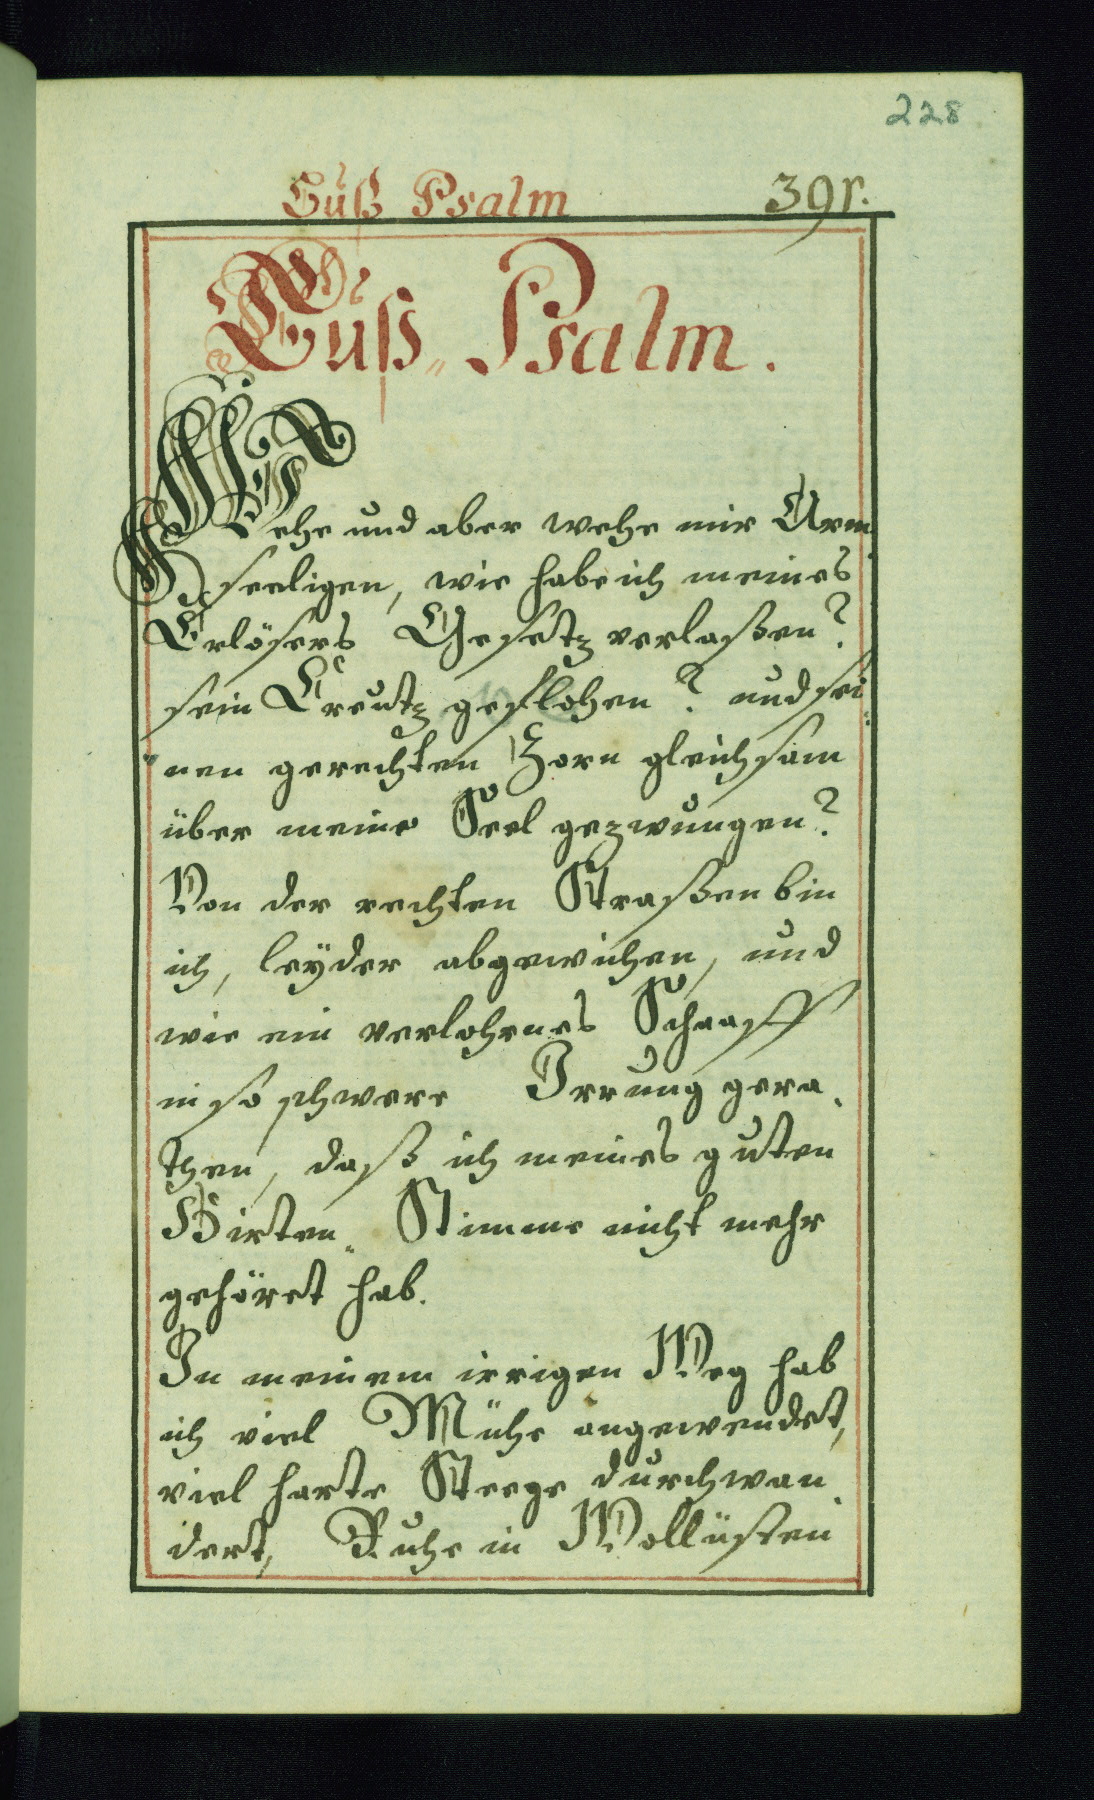 228
Buß Psalm 391.
Buß„ Psalm.
Wehe und aber wehe mir Arm„
seeligen, wie habe ich meines
Erlösers Gesetz verlaßen?
sein Creutz geflohen? und sei„
„nen gerechten Zorn gleichsam
über meine Seel gezwungen?
Von der rechten Straßen bin
ich, leÿder abgewichen, und
wie ein verlohrnes Schaaff
in so schwere Irrung gera„
then, daß ich meines guten
Hirten„ Stimme nicht mehr
gehöret hab.
In meinem irrigen Weg hab
ich viel Mühe angewendet,
viel harte Steege durchwan„
dert, Ruhe in Wollüsten